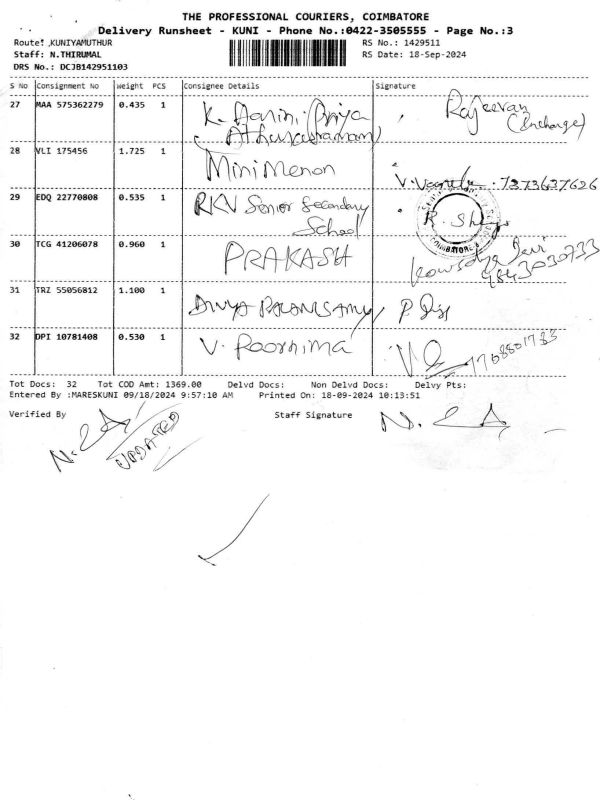 THE PROFESSIONAL COURIERS, COIMBATORE
Delivery Runsheet - KUNI - Phone No.:0422-3505555 - Page No.:3
Route: ,KUNIYAMUTHUR
RS No.: 1429511
Staff: N.THIRUMAL
RS Date: 18-Sep-2024
DRS No.: DCJB142951103
S No Consignment No Weight PCS Consignee Details Signature
27 MAA 575362279 0.435 1 K. Harini Priya Rajeevan
(Incharge)
28 VLI 175456 1.725 1 Mini Menon 7373637626
29 EDQ 22770808 0.535 1 RKV Senior Secondary
School
30 TCG 41206078 0.960 1 PRAKASH Kowsalya Devi
9843030733
31 TRZ 55056812 1.100 1 DIVYA PALANISAMY
32 DPI 10781408 0.530 1 V. Poornima
Tot Docs: 32 Tot COD Amt: 1369.00 Delvd Docs: Non Delvd Docs: Delvy Pts:
Entered By :MARESKUNI 09/18/2024 9:57:10 AM Printed On: 18-09-2024 10:13:51
Verified By Staff Signature
UPDATED